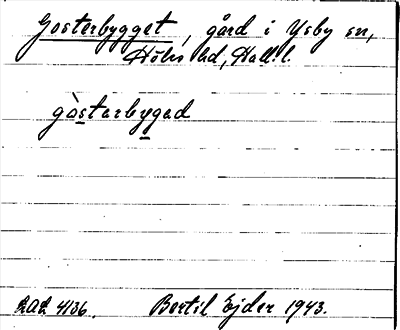 Gosterbygget, gård i Ysby sn,
Höks hd, Hall. l.
gòstarbygad
LAL 4136.  Bertil Ejder 1943.